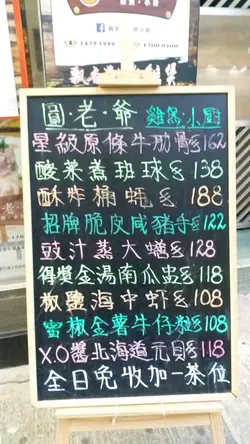 圓·老·爺 雞煲·小廚
星級原條牛肋骨$162
酸菜煮班球$138
酥炸桶蠔$188
招牌脆皮咸豬手$122
豉汁蒸大鱔$128
得獎金湯南瓜盅$118
椒鹽海中蝦$108
蜜椒金薯牛仔粒$108
X.O醬北海道元貝$118
全日免收加一茶位